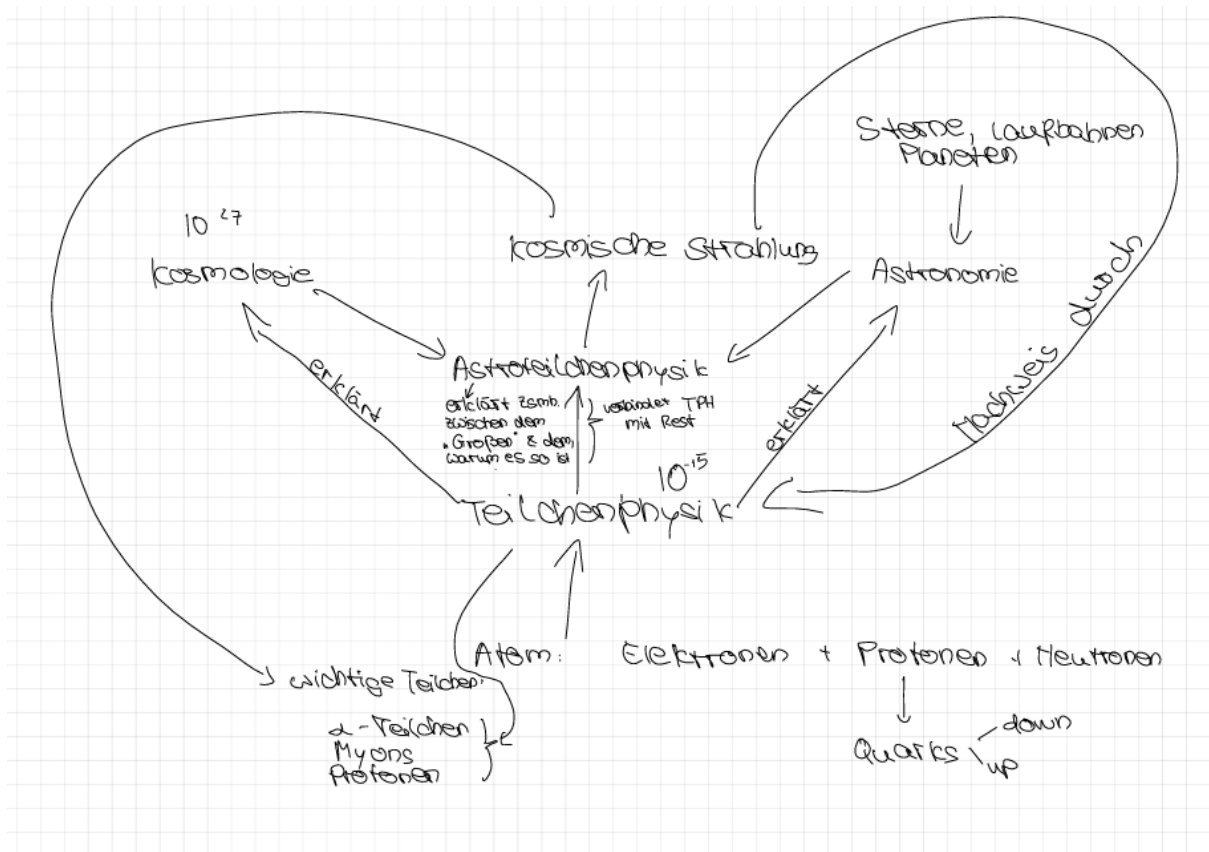 Sterne, Laufbahnen
Planeten
10^27
Kosmologie
Kosmische Strahlung
Astronomie
erklärt
Astroteilchenphysik
erklärt zsmh.
zwischen dem
"Großen" & dem,
warum es so ist
verbindet TPH
mit Rest
erklärt
Nachweis durch
10^-15
Teilchenphysik
Atom: Elektronen + Protonen + Neutronen
wichtige Teilchen:
α-Teilchen
Myons
Protonen
Quarks
down
up